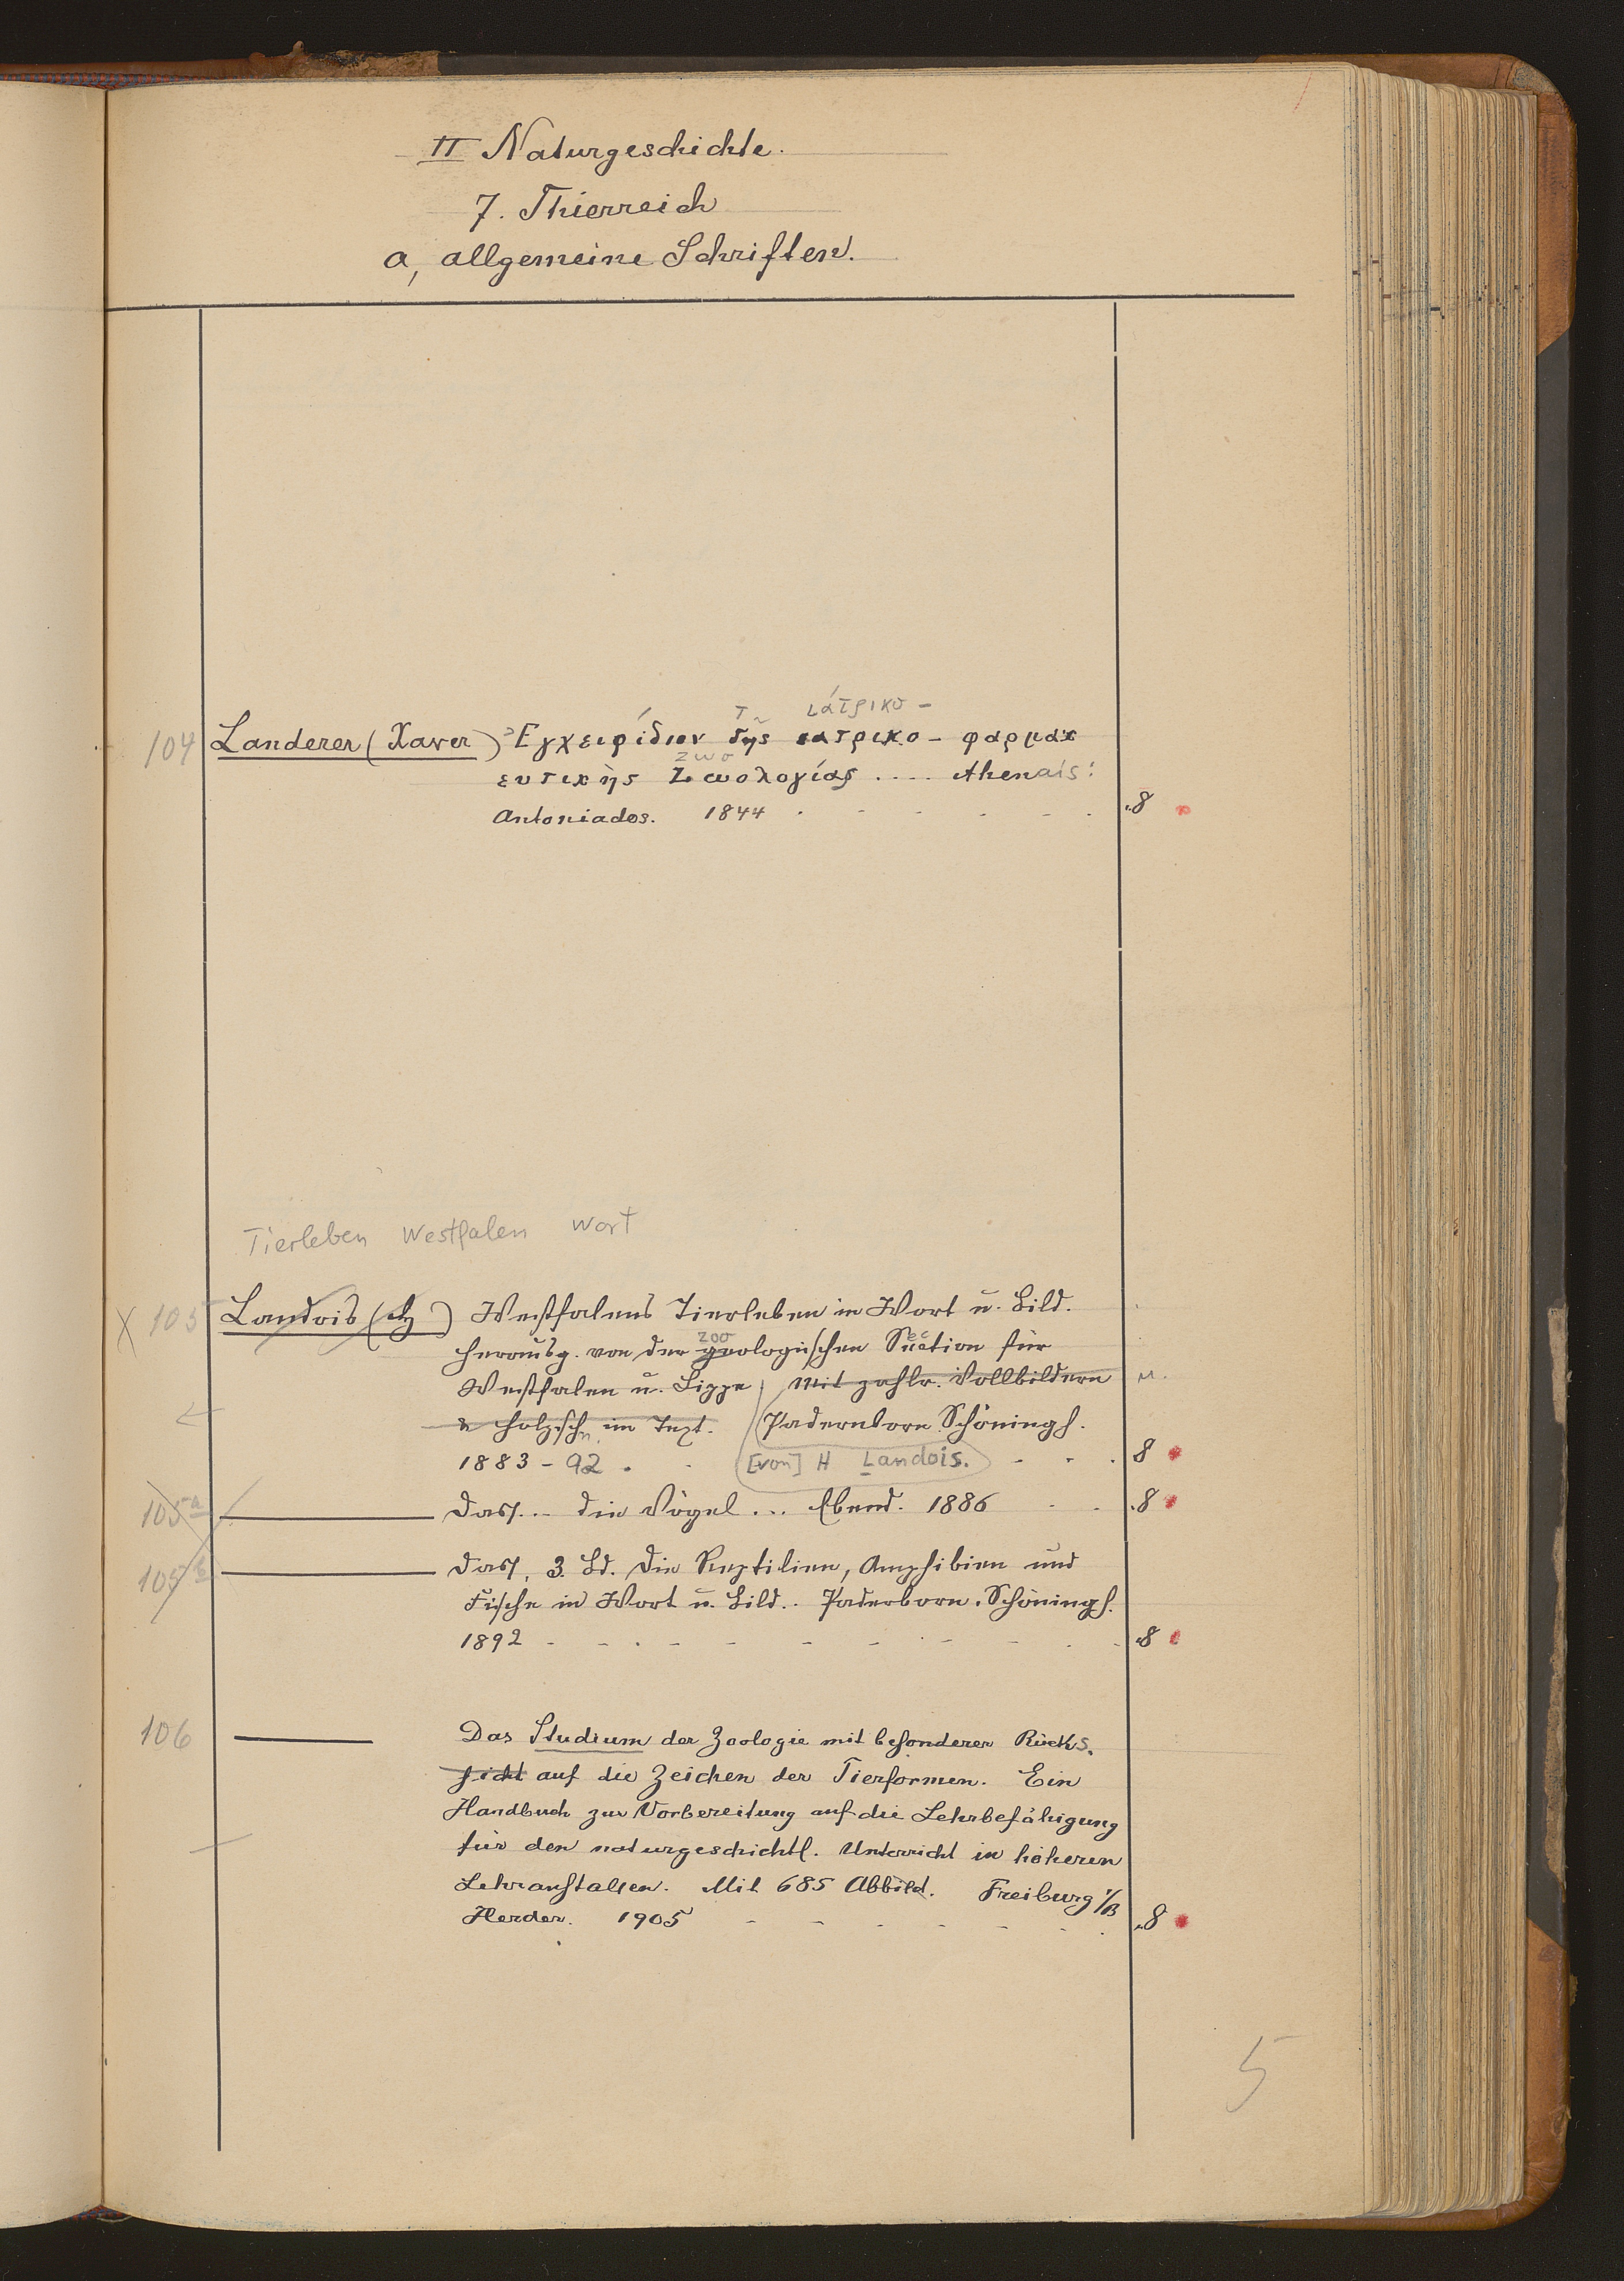 II Naturgeschichte.
7. Thierreich
a, allgemeine Schriften.
τ ἰατρικο-
104 Landerer (Xaver) Ἐγχειρίδιον τῆς ιατρικο- φαρμακ
ζωο
ευτικῆς Ζωολογίας .... Athenais:
Antoniados. 1844 . - - - - . 8
Tierleben Westfalen Wort
X 105 Landois (H) Westfalens Tierleben in Wort u. Bild.
zoo ec
Herausg. von der geologischen Section für
Westfalen u. Lippe, Mit zahlr. Vollbildern
u Holzschn. im Text. Paderborn Schöningh.
1883-92 . - [von] H Landois. - - . 8
105a Dass... die Vögel ... Ebend. 1886 - - . 8
105b Dass, 3. Bd. Die Reptilien, Amphibien und
Fische in Wort u. Bild.. Paderborn. Schöningh.
1892 - - . - - - - - - . - 8
106 Das Studium der Zoologie mit besonderer Rücks.
sicht auf die Zeichen der Tierformen. Ein
Handbuch zur Vorbereitung auf die Lehrbefähigung
für den naturgeschichtl. Unterricht in höheren
Lehranstalten. Mit 685 Abbild. Freiburg i/B
Herder. 1905 - - - - - - . 8
5